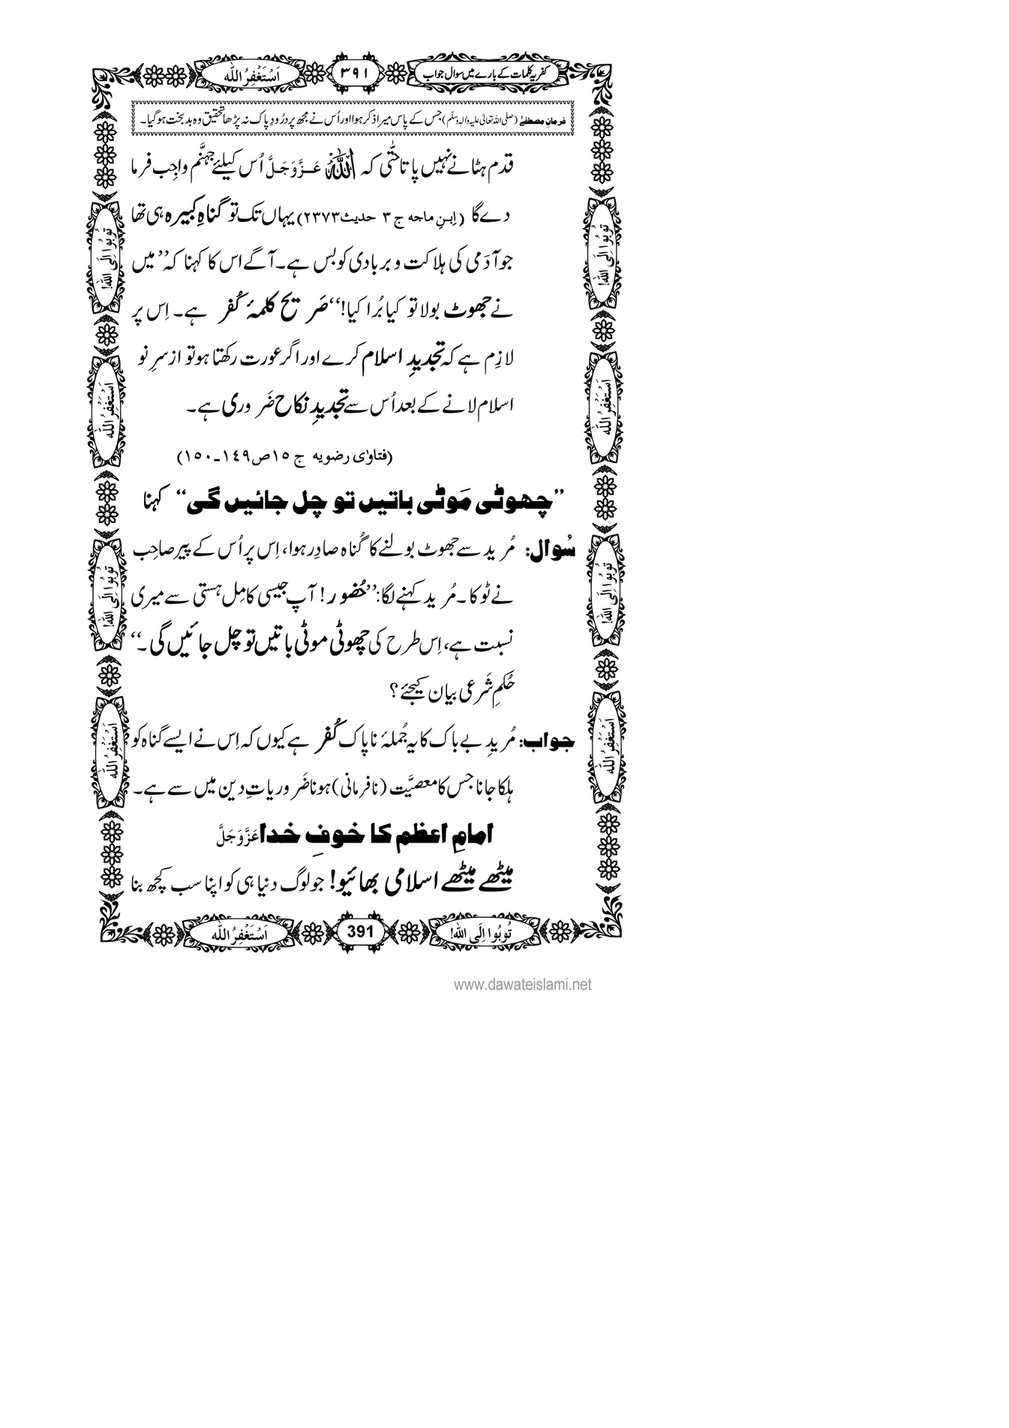 کفریہ کلمات کے بارے میں سوال جواب ٣٩١ اَسْتَغْفِرُ اللّٰه
فرمانِ مصطفےٰ (صلی اللہ تعالیٰ علیہ والہٖ وسلّم) جس کے پاس میرا ذکر ہوا اور اُس نے مجھ پر دُرُودِ پاک نہ پڑھا تحقیق وہ بد بخت ہوگیا۔
قدم ہٹانے نہیں پاتا حتّٰی کہ اللّٰہ عَزَّوَجَلَّ اُس کیلئے جہنَّم واجِب فرما
دے گا (اِبنِ ماجه ج ٣ حدیث ٢٣٧٣) یہاں تک تو گناہِ کبیرہ ہی تھا
جو آدَمی کی ہلاکت و بربادی کو بس ہے۔ آگے اس کا کہنا کہ ’’میں
نے جھوٹ بولا تو کیا بُرا کیا!‘‘ صَریح کلمۂ کُفر ہے۔ اِس پر
لازِم ہے کہ تجدیدِ اسلام کرے اور اگر عورت رکھتا ہو تو از سرِ نو
اسلام لانے کے بعد اُس سے تجدیدِ نکاح ضَروری ہے۔
(فتاوٰی رضویه ج ١٥ ص ١٤٩۔١٥٠)
’’چھوٹی مَوٹی باتیں تو چل جائیں گی‘‘ کہنا
سُوال: مُرید سے جھوٹ بولنے کا گُناہ صادِر ہوا، اِس پر اُس کے پیر صاحِب
نے ٹوکا۔ مُرید کہنے لگا: ’’حُضور! آپ جیسی کامِل ہستی سے میری
نسبت ہے، اِس طرح کی چھوٹی موٹی باتیں تو چل جائیں گی۔‘‘
حُکمِ شَرعی بیان کیجئے؟
جواب: مُریدِ بے باک کا یہ جُملۂ ناپاک کُفر ہے کیوں کہ اِس نے ایسے گناہ کو
ہلکا جانا جس کا معصیَّت (نافرمانی) ہونا ضَروریاتِ دین میں سے ہے۔
امامِ اعظم کا خوفِ خدا عَزَّوَجَلَّ
میٹھے میٹھے اسلامی بھائیو! جو لوگ دنیا ہی کو اپنا سب کچھ بنا
تُوبُوا اِلَی اللّٰه! 391 اَسْتَغْفِرُ اللّٰه
تُوبُوا اِلَی اللّٰه!
اَسْتَغْفِرُ اللّٰه
تُوبُوا اِلَی اللّٰه!
اَسْتَغْفِرُ اللّٰه
تُوبُوا اِلَی اللّٰه!
اَسْتَغْفِرُ اللّٰه
تُوبُوا اِلَی اللّٰه!
اَسْتَغْفِرُ اللّٰه
www.dawateislami.net